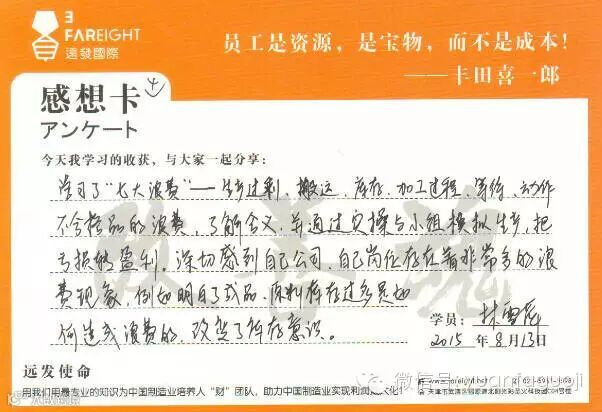 3
FAREIGHT
远發國際
员工是资源，是宝物，而不是成本！
——丰田喜一郎
感想卡
アンケート
今天我学习的收获，与大家一起分享：
学习了“七大浪费”——生产过剩、搬运、库存、加工过程、等待、动作
不合格品的浪费，了解含义，并通过实操与小组模拟生产，把
亏损转盈利。深切感到自己公司，自己岗位存在着非常多的浪
费现象，例如明白了成品、原料库存过多是如
何造成浪费的，改变了库存意识。
学员：林雪
2015年8月13日
远发使命
用我们用最专业的知识为中国制造业培养人“财”团队，助力中国制造业实现利润最大化！
微信号
www.foreight.net